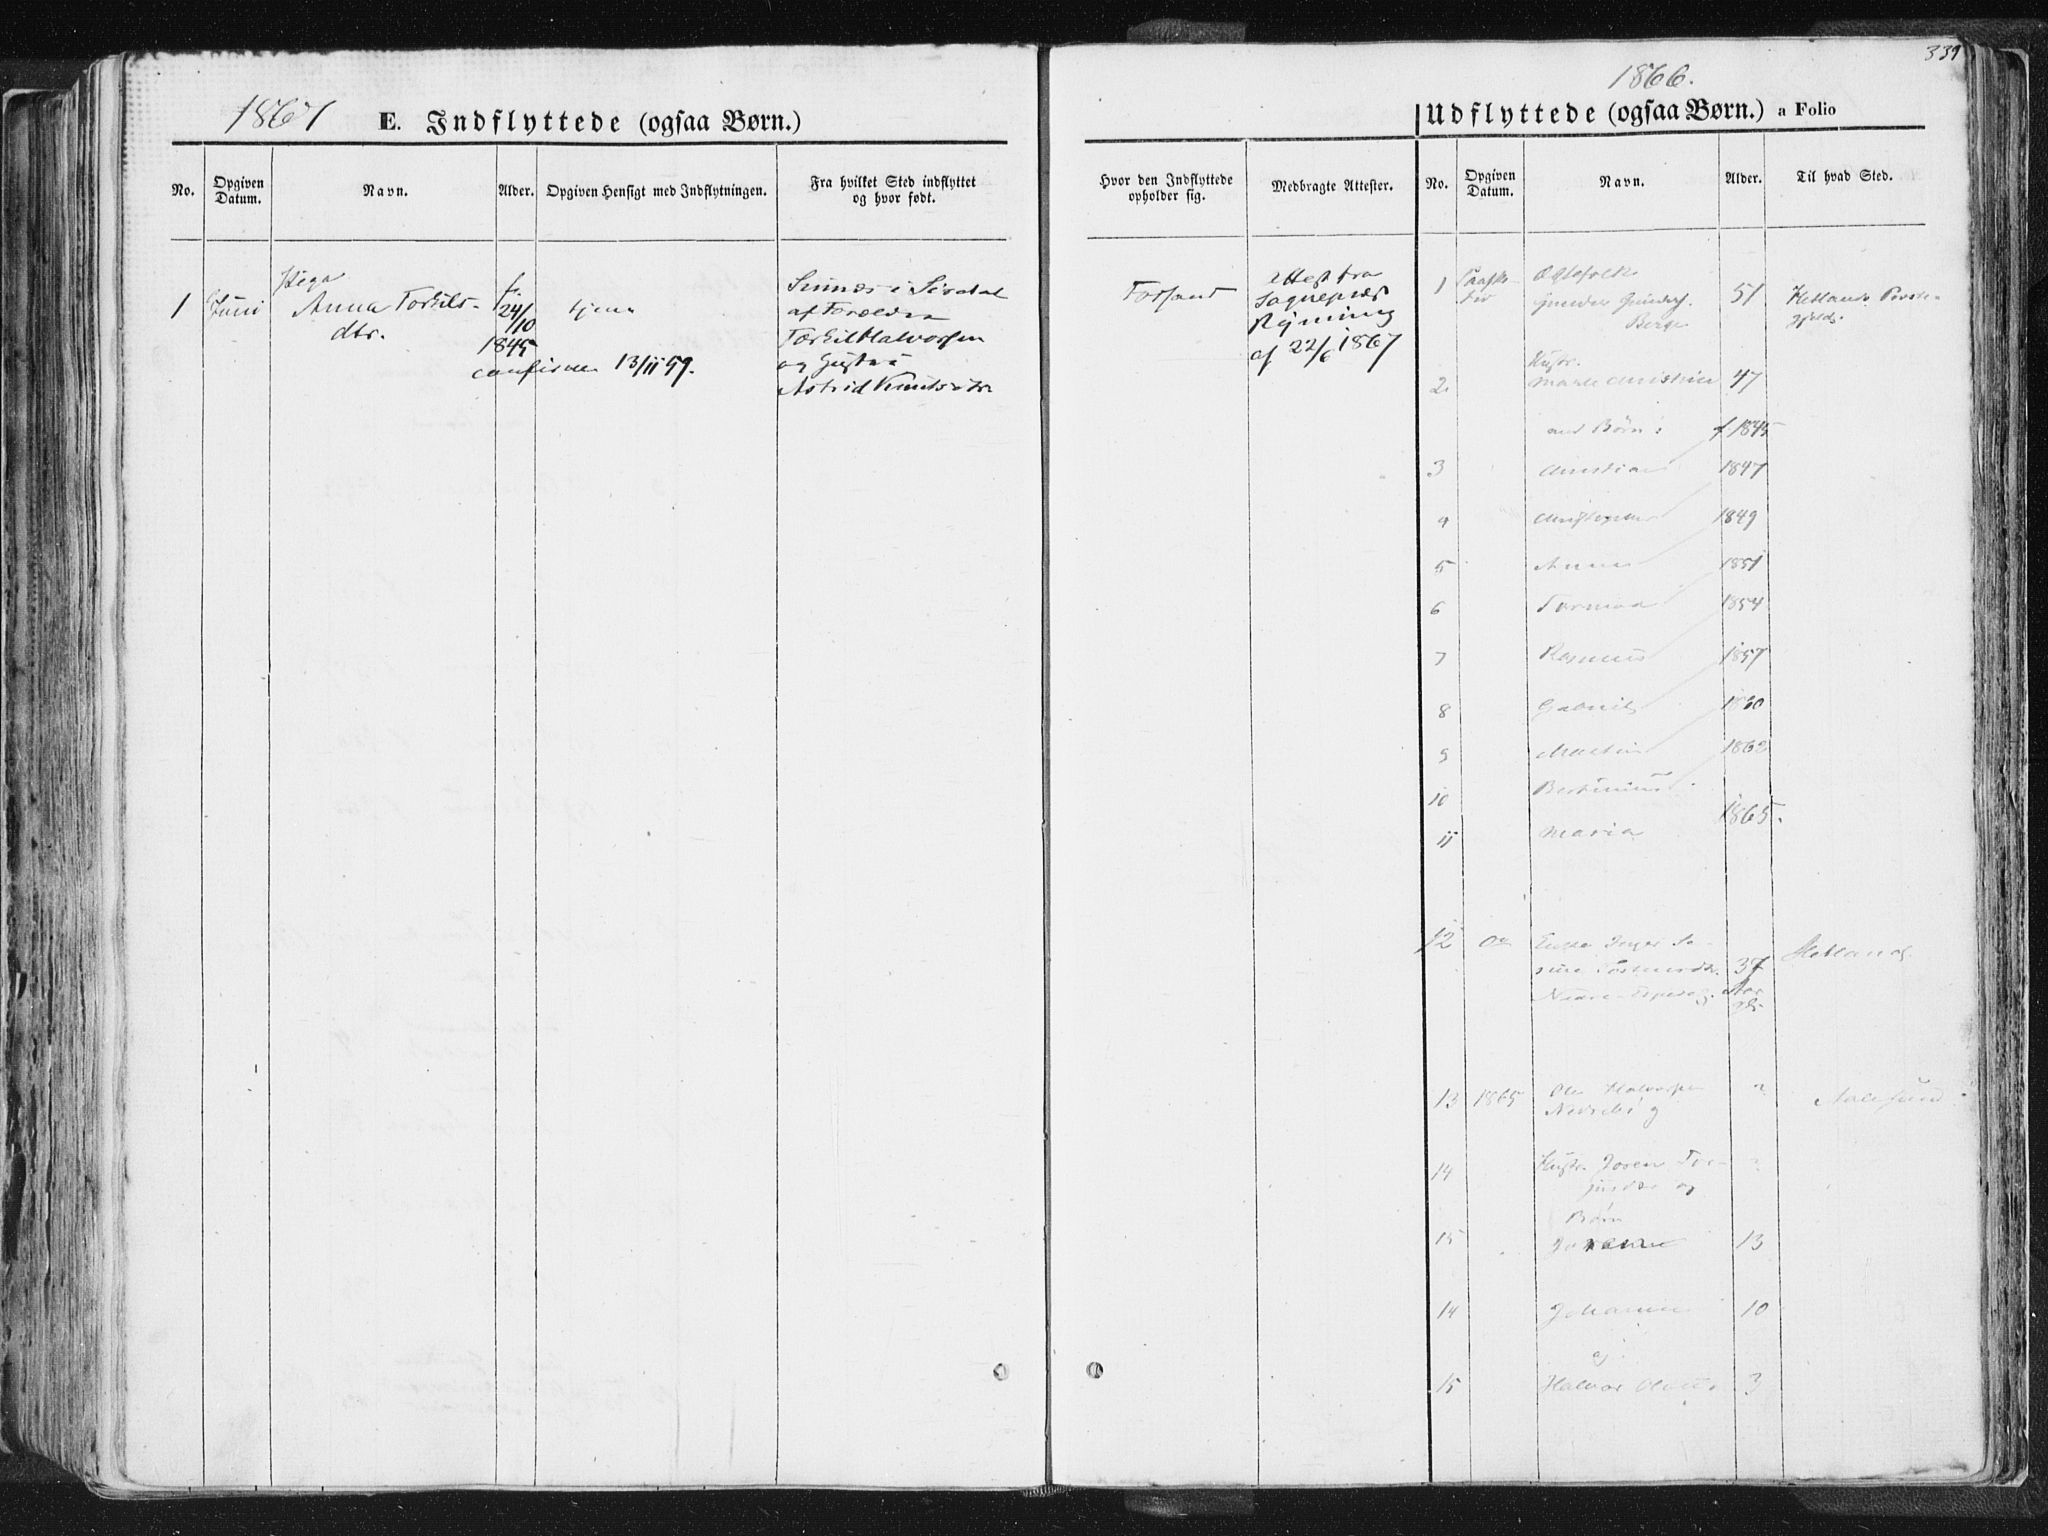 339
1867
E. Indflyttede (ogsaa Børn.)
No.
Opgiven Datum.
Navn.
Alder.
Opgiven Hensigt med Indflytningen.
Fra hvilket Sted indflyttet og hvor født.
Hvor den Indflyttede opholder sig.
Medbragte Attester.
1
Juni
Pige
Anna Torkils-
dtr.
f.
24/10
1845
confirm 13/11 59.
tjene
Sinnæs i Sirdal
af Forældre
Tærkil Halvorsen
og Hustru
Astrid Knutsdtr
Forsand
Attest fra
Sognepræst
af 22/6 1867
1866.
Udflyttede (ogsaa Børn.) a Folio
No.
Opgiven Datum.
Navn.
Alder.
Til hvad Sted.
1
Ægtefolk
Gunder Gunders.
Berge
51
Hetlands Præste-
gjeld.
2
Hustr.
Marte Christine 47
med Børn: f. 1845
3 Christian 1847
4 Christopher 1849
5 Anna 1851
6 Tormod 1854
7 Rasmus 1857
8 Gabriel 1860
9 Martin 1862
10 Bertinius
1865.
11 Maria
12 Do Enke Inger
37 Hetland
13 1865 Ole Halvorsen ?
Aalesund
14 Hustr. Joren Tor- ?
og
Børn
15 13
14 Johanne 10
og
15 Halvor 3